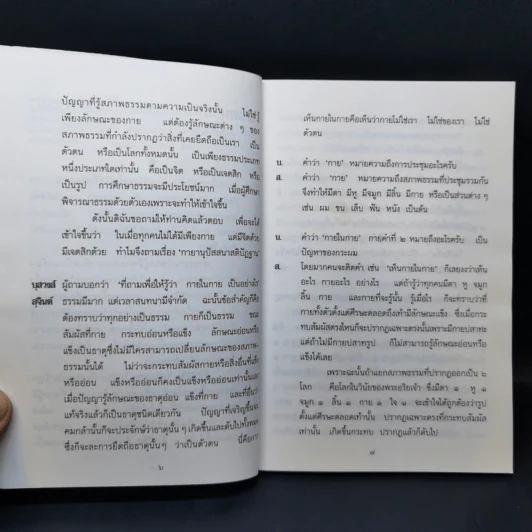 ปัญญาที่รู้สภาพธรรมตามความเป็นจริงนั้น ไม่ใช่รู้
เพียงลักษณะของกาย แต่ต้องรู้ลักษณะต่าง ๆ ของ
สภาพธรรมที่กำลังปรากฏว่าสิ่งที่เคยยึดถือเป็นเรา เป็น
ตัวตน หรือเป็นโลกทั้งหมดนั้น เป็นเพียงธรรมประเภท
หนึ่งประเภทใดเท่านั้น คือเป็นจิต หรือเป็นเจตสิก หรือ
เป็นรูป การศึกษาธรรมจะมีประโยชน์มาก เมื่อผู้ศึกษา
พิจารณาธรรมด้วยตัวเองเพราะจะทำให้เข้าใจขึ้น
ดังนั้นดิฉันขอถามให้ท่านคิดแล้วตอบ เพื่อจะได้
เข้าใจขึ้นว่า ในเมื่อทุกคนไม่ได้มีเพียงกาย แต่มีจิตด้วย
มีเจตสิกด้วย ทำไมจึงถามเรื่อง 'กายานุปัสสนาสติปัฏฐาน'
บุสวงส์ ผู้ถามบอกว่า 'ที่ถามเพื่อให้รู้ว่า กายในกาย เป็นอย่างไร'
สุจินต์ ธรรมมีมาก แต่เวลาสนทนามีจำกัด ฉะนั้นข้อสำคัญก็คือ
ต้องทราบว่าทุกอย่างเป็นธรรม กายก็เป็นธรรม ขณะ
สัมผัสที่กาย กระทบอ่อนหรือแข็ง ลักษณะอ่อนหรือ
แข็งเป็นธาตุซึ่งไม่มีใครสามารถเปลี่ยนลักษณะของสภาพ
ธรรมนั้นได้ ไม่ว่าจะกระทบสัมผัสกายหรือสิ่งอื่นที่แข็ง
หรืออ่อน แข็งหรืออ่อนก็คงเป็นแข็งหรืออ่อนเท่านั้น
เมื่อปัญญารู้ลักษณะของธาตุอ่อน แข็งที่กาย และที่อื่น
แท้จริงแล้วก็เป็นธาตุชนิดเดียวกัน ปัญญาที่เจริญขึ้น
คมกล้านั้นก็จะประจักษ์ว่าธาตุนั้น ๆ เกิดขึ้นและดับไปทั้งหมด
ซึ่งก็จะละการยึดถือธาตุนั้นๆ ว่าเป็นตัวตน นี่คือการ
๖
เห็นกายในกายคือเห็นว่ากายไม่ใช่เรา ไม่ใช่ของเรา ไม่ใช่
ตัวตน
บ. คำว่า 'กาย' หมายความถึงการประชุมอะไรครับ
ส. คำว่า 'กาย' หมายความถึงสภาพธรรมที่ประชุมรวมกัน
จึงทำให้มีตา มีหู มีจมูก มีลิ้น มีกาย หรือเป็นส่วนต่าง ๆ
เช่น ผม ขน เล็บ ฟัน หนัง เป็นต้น
บ. คำว่า 'กายในกาย' กายคำที่ ๒ หมายถึงอะไรครับ เป็น
ปัญหาของกระผม
ส. โดยมากคนจะติดคำ เช่น 'เห็นกายในกาย' ก็เลยงงว่าเห็น
อะไร กายอะไร อย่างไร แต่ถ้ารู้ว่าทุกคนมีตา หู จมูก
ลิ้น กาย และกายที่จะรู้นั้น รู้เมื่อไร ก็จะทราบว่าที่
กายทั้งตัวตั้งแต่ศีรษะตลอดถึงเท้ามีลักษณะแข็ง ซึ่งเมื่อ
กระทบสัมผัสตรงไหนก็จะปรากฏเฉพาะตรงนั้นเพราะมีกายปสาทะ
แต่ถ้าไม่มีกายปสาทรูป ก็ไม่สามารถรู้ลักษณะอ่อนหรือ
แข็งได้เลย
เพราะฉะนั้นถ้าแยกสภาพธรรมที่ปรากฏออกเป็น ๖
โลก คือโลกในวินัยของพระอริยเจ้า ซึ่งมีตา ๑ หู ๑
จมูก ๑ ลิ้น ๑ กาย ๑ ใจ ๑ จะเข้าใจได้ถูกต้องว่ารูป
ตั้งแต่ศีรษะตลอดเท้านั้น ปรากฏเฉพาะตรงที่กระทบสัมผัส
เท่านั้น เกิดขึ้นกระทบ ปรากฏแล้วก็ดับไป
๗